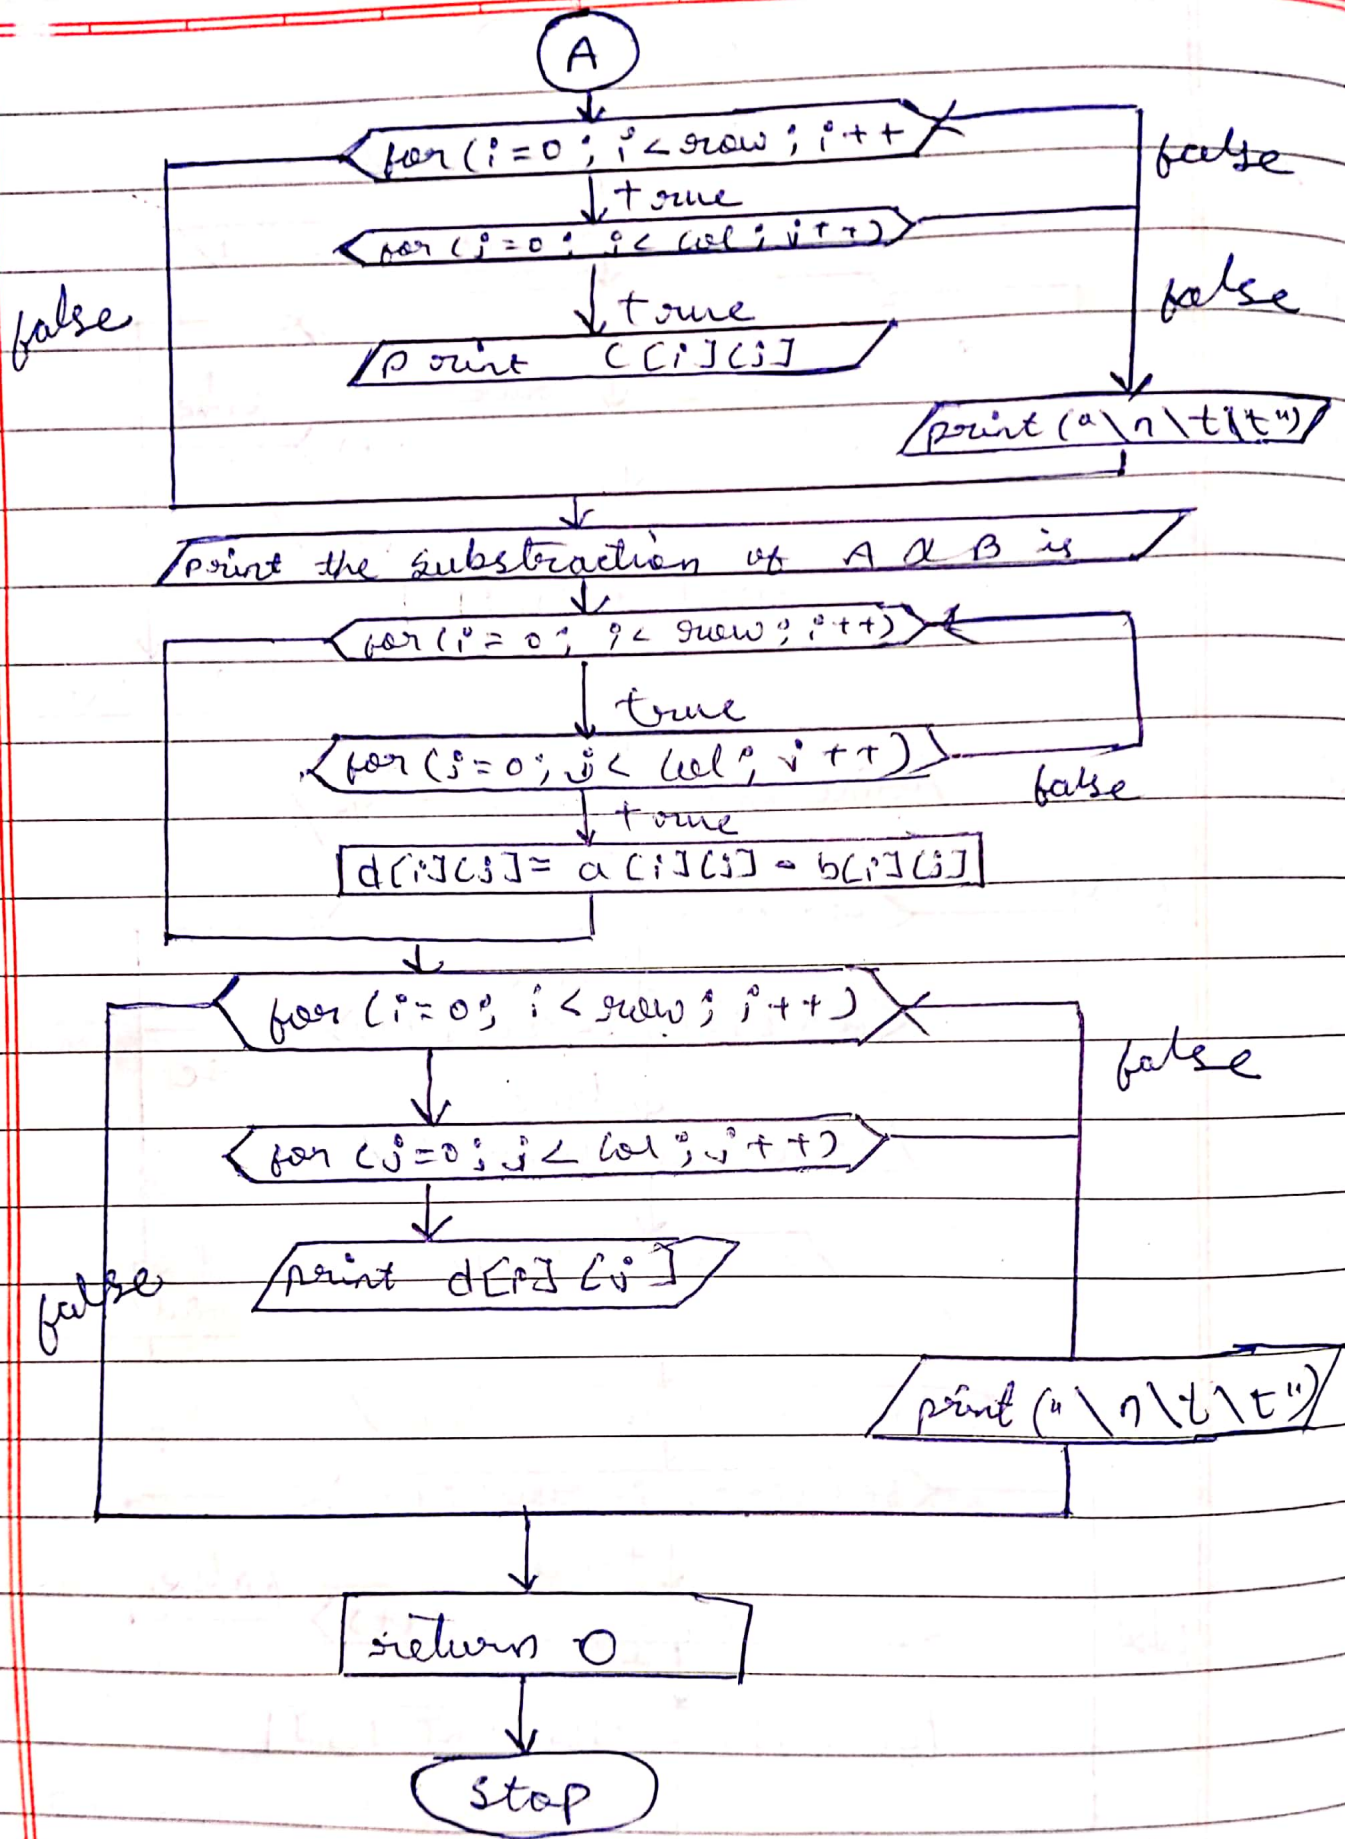 A
for (i=0; i<row; i++
false
true
for (j=0; j< col; j++)
false
false
true
print C[i][j]
print ("\n\t\t")
print the substraction of A & B is
for (i=0; i< row; i++)
true
for (j=0; j< col; j++)
false
true
d[i][j]= a[i][j] - b[i][j]
for (i=0; i<row; i++)
false
for (j=0; j< col; j++)
false
print d[i][j]
print ("\n\t\t")
return 0
stop